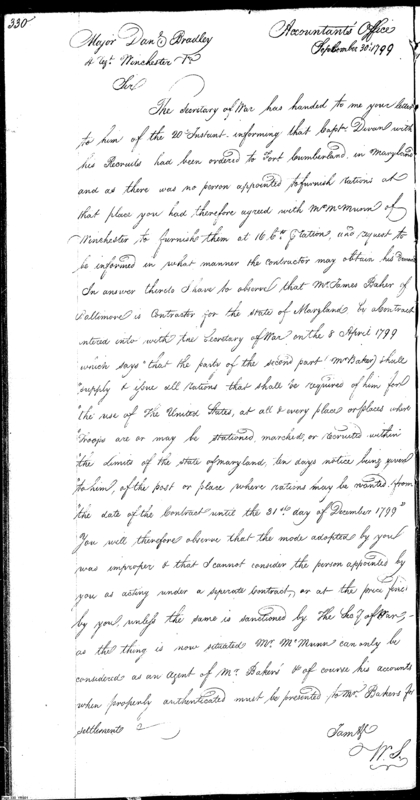 330
Accountants Office
September 30th 1799
Major Danl Bradley
4 Regt. Winchester Va
Sir
The Secretary of War has handed to me your letter
to him of the 20 Instant informing that Capt. Devan with
his Recruits had been ordered to Fort Cumberland in Maryland
and as there was no person appointed to furnish rations at
that place you had therefore agreed with Mr. McMunn of
Winchester to furnish them at 16 Cts ration, and request to
be informed in what manner the contractor may obtain his
In answer thereto I have to observe that Mr. James Baker of
Baltimore is Contractor for the state of Maryland by a Contract
entered into with the Secretary of War on the 8 April 1799
which says "that the party of the second part (Mr Baker) shall
"supply & issue all rations that shall be required of him for
"the use of The United States, at all & every place or places where
"Troops are or may be stationed, marched, or recruited within
"the limits of the state of maryland, ten days notice being given
"to him, of the post or place where rations may be wanted from
"the date of the Contract until the 31st day of December 1799"
You will therefore observe that the mode adopted by you
was improper & that I cannot consider the person appointed by
you as acting under a seperate Contract, or at the price
by you, unless the same is sanctioned by The Secy of War,—
as the thing is now situated Mr. McMunn can only be
considered as an Agent of Mr. Bakers & of course his accounts
when properly authenticated must be presented to Mr. Bakers for
settlements
I am &c
W. S.